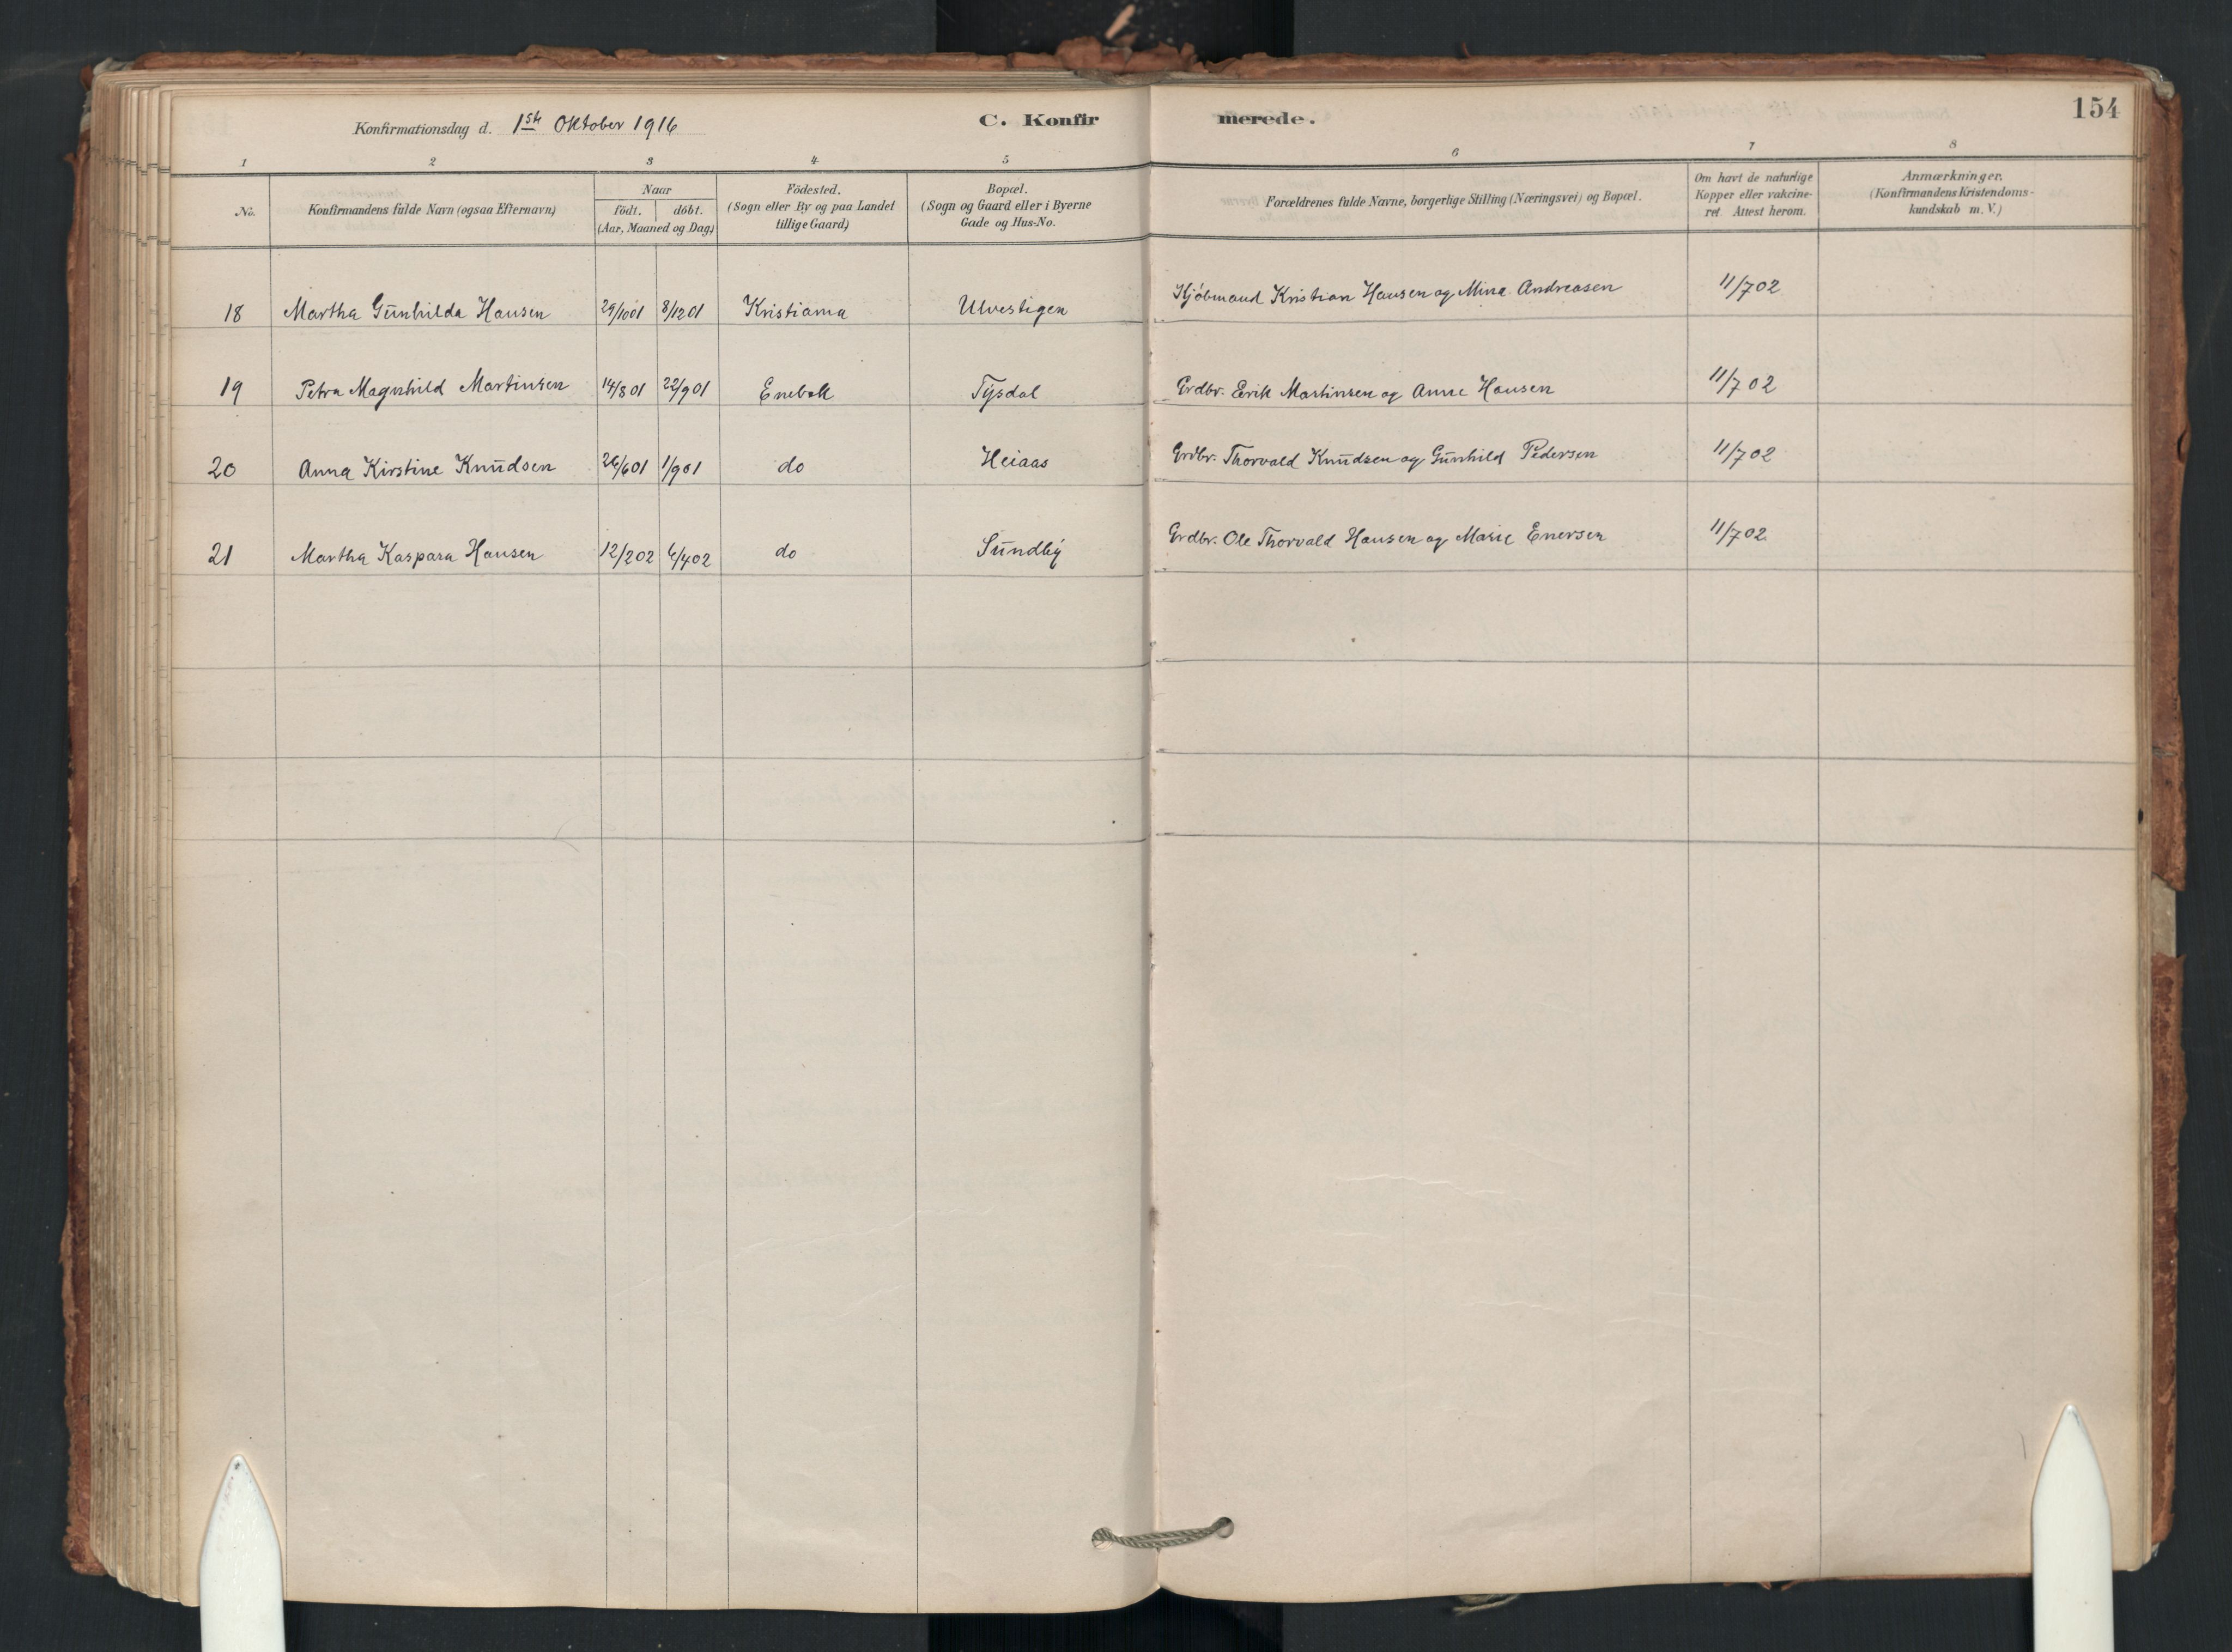 154
Konfirmationsdag d. 1ste Oktober 1916 C. Konfir merede.
1 2 3 4 5 6 7 8
No. Konfirmandens fulde Navn (ogsaa Efternavn) Naar födt. döbt. (Aar, Maaned og Dag) Födested. (Sogn eller By og paa Landet tillige Gaard) Bopæl. (Sogn og Gaard eller i Byerne Gade og Hus-No. Forældrenes fulde Navne, borgerlige Stilling (Næringsvei) og Bopæl. Om havt de naturlige Kopper eller vakcineret. Attest herom. Anmærkninger. (Konfirmandens Kristendomskundskab m.V.)
18 Martha Gunhilda Hansen 29/10 01 8/12 01 Kristiania Ulvestigen Kjöbmand Kristian Hansen og Mina Andreasen 11/7 02
19 Petra Magnhild Martinsen 14/8 01 22/9 01 Enebak Tysdal Grdbr. Erik Martinsen og Anne Hansen 11/7 02
20 Anna Kirstine Knudsen 26/6 01 1/9 01 do Heiaas Grdbr. Thorvald Knudsen og Gunhild Pedersen 11/7 02
21 Martha Kaspara Hansen 12/2 02 6/4 02 do Sundby Grdbr. Ole Thorvald Hansen og Marie Enersen 11/7 02